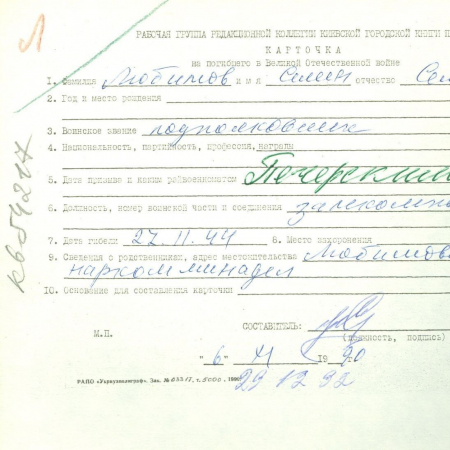 Л
РАБОЧАЯ ГРУППА РЕДАКЦИОННОЙ КОЛЛЕГИИ КИЕВСКОЙ ГОРОДСКОЙ КНИГИ П
КАРТОЧКА
на погибшего в Великой Отечественной войне
1. Фамилия Любимов имя Семен отчество Сем
2. Год и место рождения
3. Воинское звание подполковник
4. Национальность, партийность, профессия, награды
5. Дата призыва и каким райвоенкоматом Печерским
6. Должность, номер воинской части и соединения
7. Дата гибели 27.11.44 8. Место захоронения
9. Сведения о родственниках, адрес местожительства Любимов
нарком
10. Основание для составления карточки
СОСТАВИТЕЛЬ:
М.П. (должность, подпись)
"6" XI 1990
РАПО «Укрвузполиграф». Зак. т. 5000,
29 12 92
кв 54 217